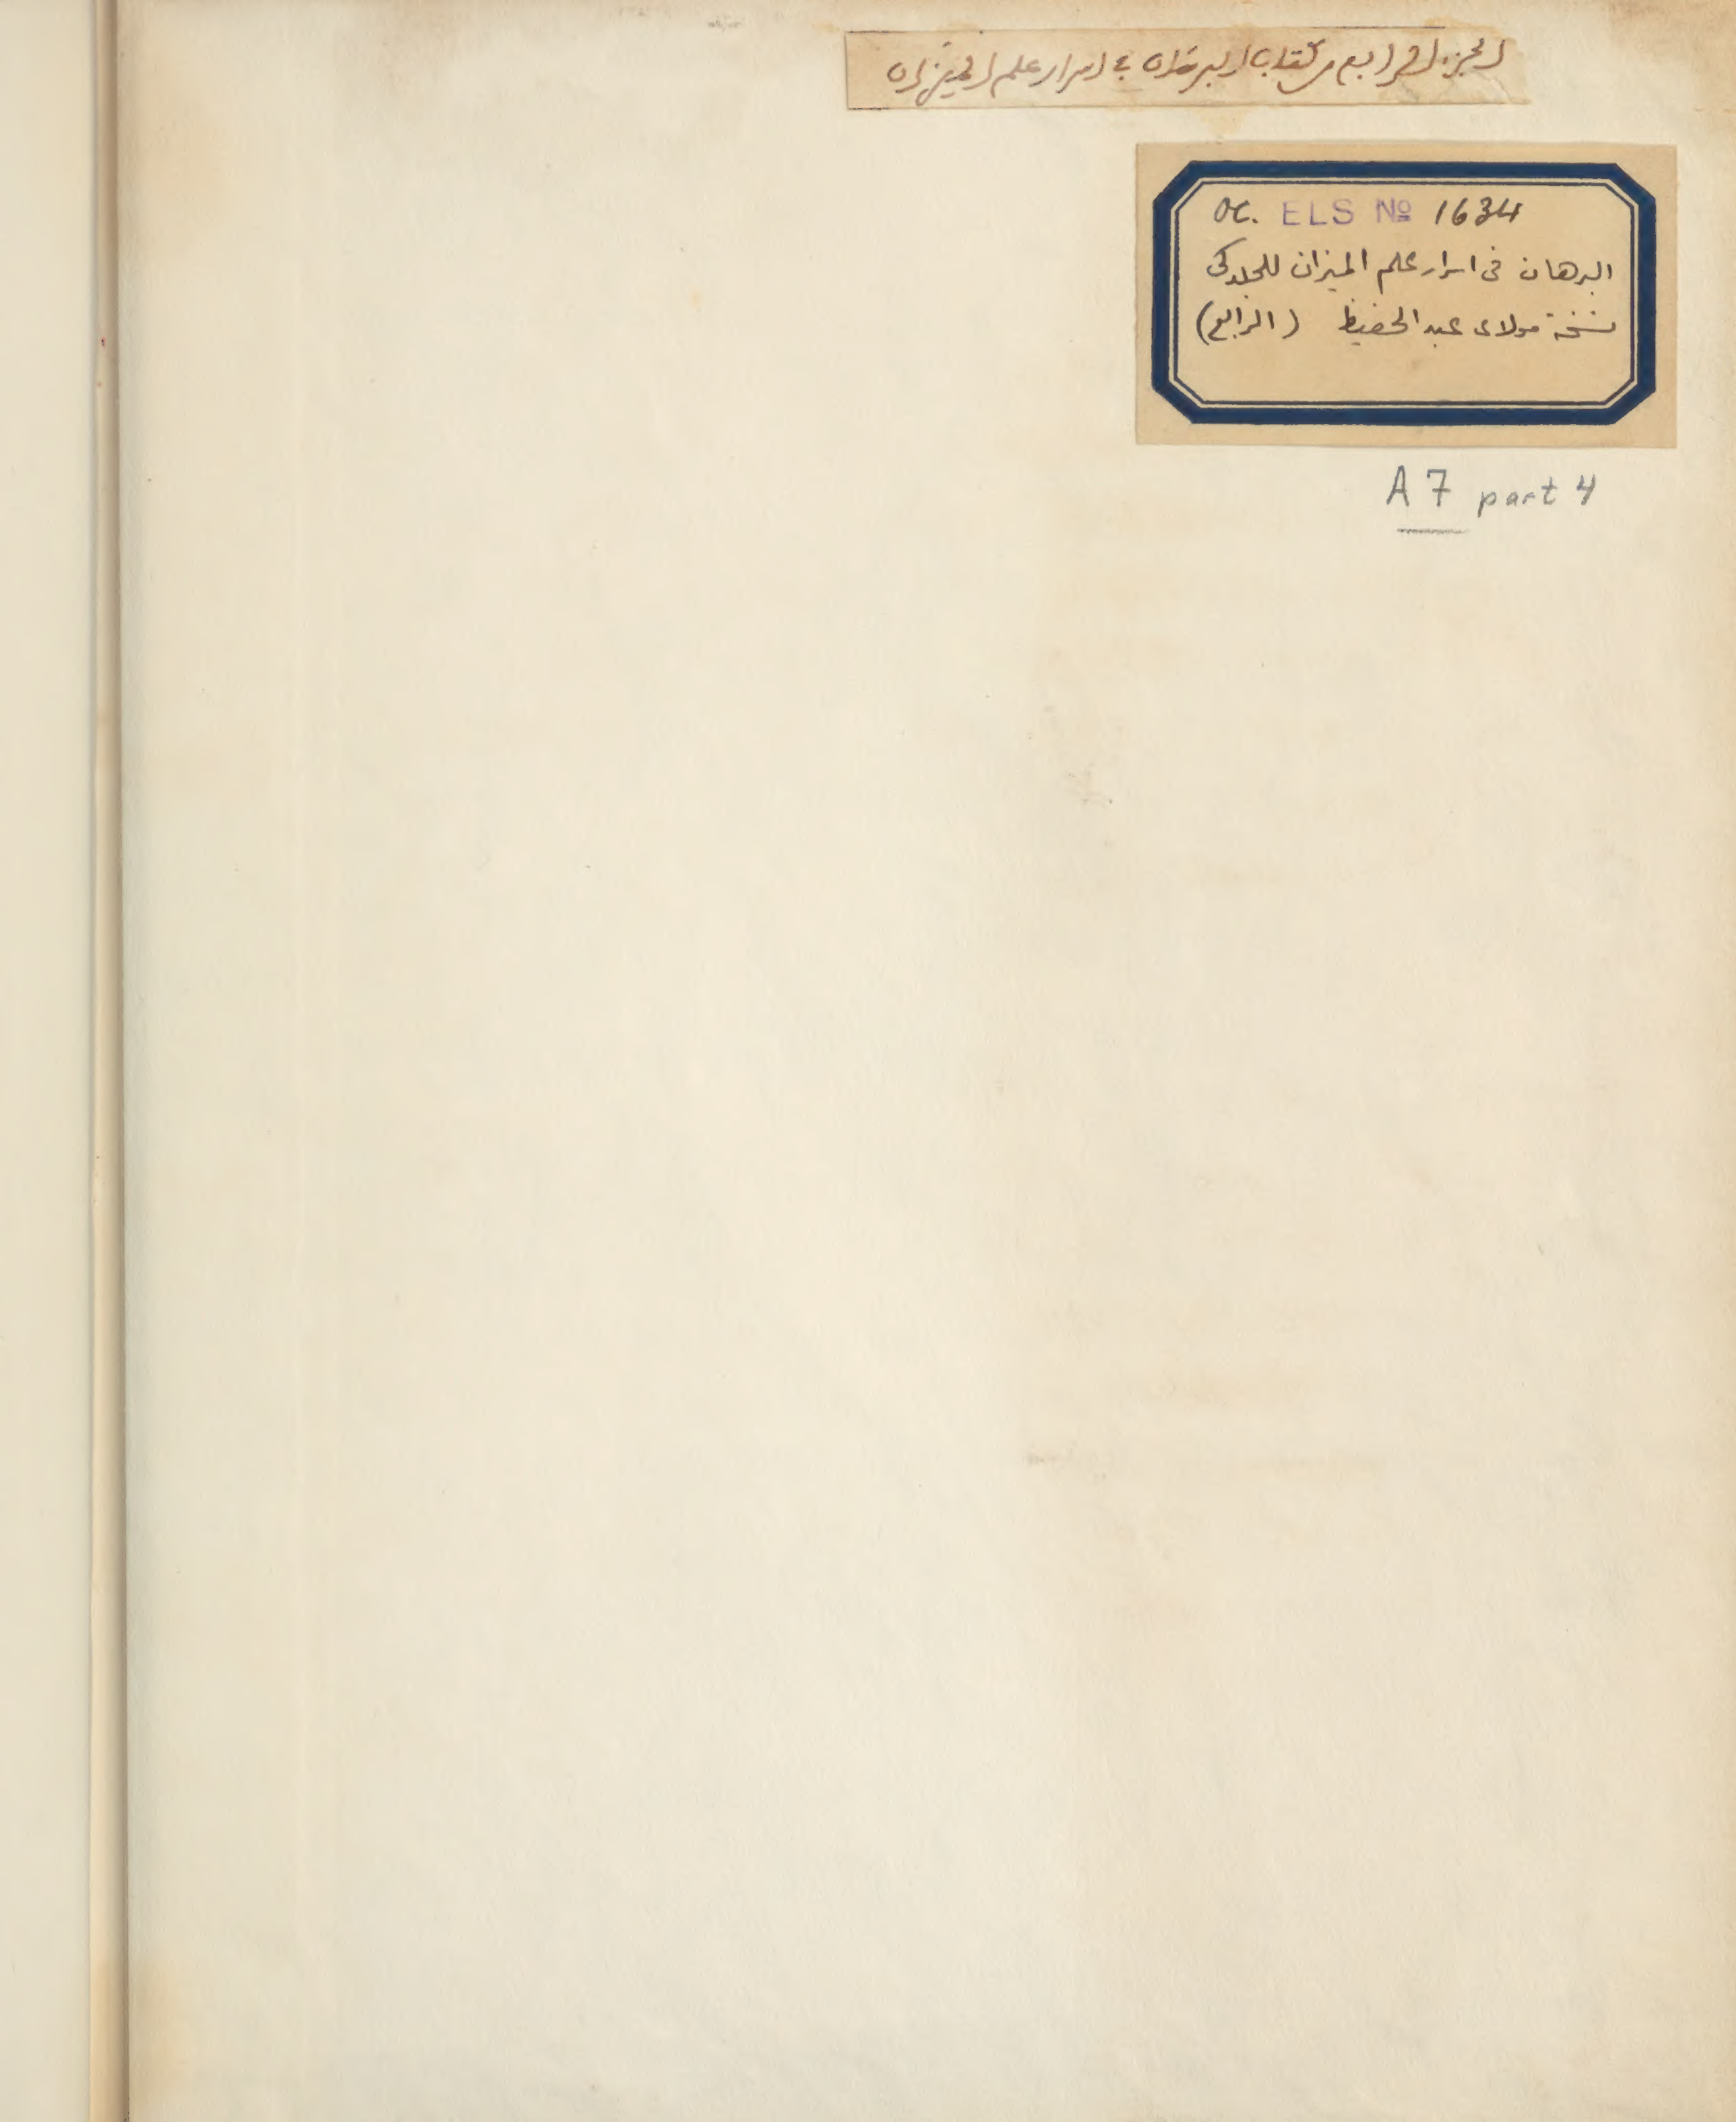 الجزء الرابع من كتاب البرهان في اسرار علم الميزان
OC. ELS No 1634
البرهان فى اسرار علم الميزان للجلدكى
نسخة مولاى عبد الحفيظ (الرابع)
A 7 part 4